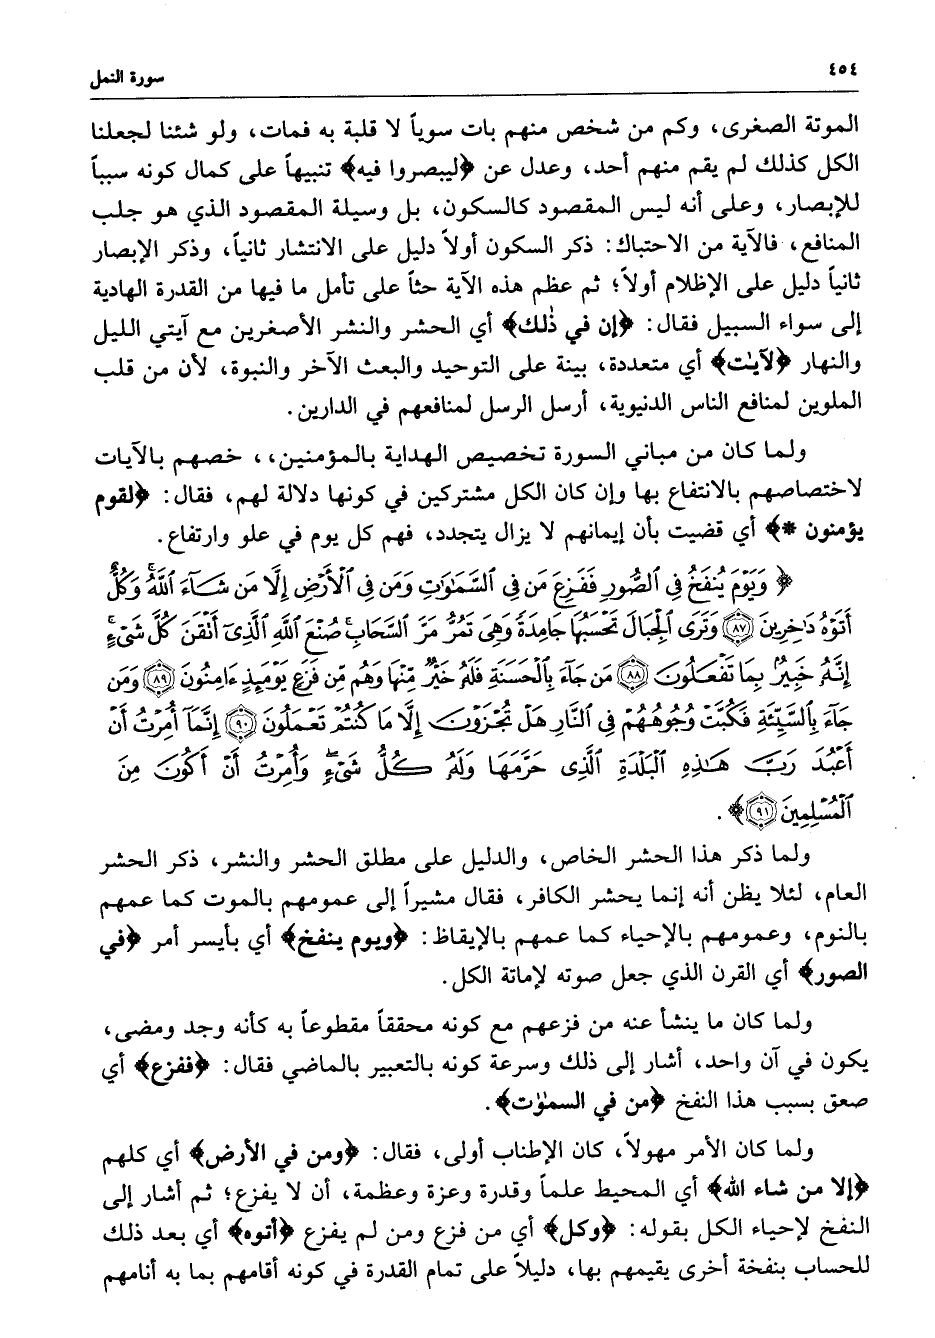 ٤٥٤
سورة النمل
الموتة الصغرى، وكم من شخص منهم بات سوياً لا قلبة به فمات، ولو شئنا لجعلنا
الكل كذلك لم يقم منهم أحد، وعدل عن ﴿ليبصروا فيه﴾ تنبيهاً على كمال كونه سبباً
للإبصار، وعلى أنه ليس المقصود كالسكون، بل وسيلة المقصود الذي هو جلب
المنافع، فالآية من الاحتباك: ذكر السكون أولاً دليل على الانتشار ثانياً، وذكر الإبصار
ثانياً دليل على الإظلام أولاً؛ ثم عظم هذه الآية حثاً على تأمل ما فيها من القدرة الهادية
إلى سواء السبيل فقال: ﴿إن في ذٰلك﴾ أي الحشر والنشر الأصغرين مع آيتي الليل
والنهار ﴿لآيٰت﴾ أي متعددة، بينة على التوحيد والبعث الآخر والنبوة، لأن من قلب
الملوين لمنافع الناس الدنيوية، أرسل الرسل لمنافعهم في الدارين.
ولما كان من مباني السورة تخصيص الهداية بالمؤمنين،، خصهم بالآيات
لاختصاصهم بالانتفاع بها وإن كان الكل مشتركين في كونها دلالة لهم، فقال: ﴿لقوم
يؤمنون *﴾ أي قضيت بأن إيمانهم لا يزال يتجدد، فهم كل يوم في علو وارتفاع.
﴿ وَيَوْمَ يُنفَخُ فِي ٱلصُّورِ فَفَزِعَ مَن فِي ٱلسَّمَٰوَٰتِ وَمَن فِي ٱلْأَرْضِ إِلَّا مَن شَآءَ ٱللَّهُۚ وَكُلٌّ
أَتَوْهُ دَٰخِرِينَ ﴿٨٧﴾ وَتَرَى ٱلْجِبَالَ تَحْسَبُهَا جَامِدَةً وَهِيَ تَمُرُّ مَرَّ ٱلسَّحَابِۚ صُنْعَ ٱللَّهِ ٱلَّذِيٓ أَتْقَنَ كُلَّ شَيْءٍۚ
إِنَّهُۥ خَبِيرٌۢ بِمَا تَفْعَلُونَ ﴿٨٨﴾ مَن جَآءَ بِٱلْحَسَنَةِ فَلَهُۥ خَيْرٌ مِّنْهَا وَهُم مِّن فَزَعٍ يَوْمَئِذٍ ءَامِنُونَ ﴿٨٩﴾ وَمَن
جَآءَ بِٱلسَّيِّئَةِ فَكُبَّتْ وُجُوهُهُمْ فِي ٱلنَّارِ هَلْ تُجْزَوْنَ إِلَّا مَا كُنتُمْ تَعْمَلُونَ ﴿٩٠﴾ إِنَّمَآ أُمِرْتُ أَنْ
أَعْبُدَ رَبَّ هَٰذِهِ ٱلْبَلْدَةِ ٱلَّذِي حَرَّمَهَا وَلَهُۥ كُلُّ شَيْءٍۖ وَأُمِرْتُ أَنْ أَكُونَ مِنَ
ٱلْمُسْلِمِينَ ﴿٩١﴾﴾.
ولما ذكر هذا الحشر الخاص، والدليل على مطلق الحشر والنشر، ذكر الحشر
العام، لئلا يظن أنه إنما يحشر الكافر، فقال مشيراً إلى عمومهم بالموت كما عمهم
بالنوم، وعمومهم بالإحياء كما عمهم بالإيقاظ: ﴿ويوم ينفخ﴾ أي بأيسر أمر ﴿في
الصور﴾ أي القرن الذي جعل صوته لإماتة الكل.
ولما كان ما ينشأ عنه من فزعهم مع كونه محققاً مقطوعاً به كأنه وجد ومضى،
يكون في آن واحد، أشار إلى ذلك وسرعة كونه بالتعبير بالماضي فقال: ﴿ففزع﴾ أي
صعق بسبب هذا النفخ ﴿من في السمٰوٰت﴾.
ولما كان الأمر مهولاً، كان الإطناب أولى، فقال: ﴿ومن في الأرض﴾ أي كلهم
﴿إلا من شاء الله﴾ أي المحيط علماً وقدرة وعزة وعظمة، أن لا يفزع؛ ثم أشار إلى
النفخ لإحياء الكل بقوله: ﴿وكل﴾ أي من فزع ومن لم يفزع ﴿أتوه﴾ أي بعد ذلك
للحساب بنفخة أخرى يقيمهم بها، دليلاً على تمام القدرة في كونه أقامهم بما به أنامهم